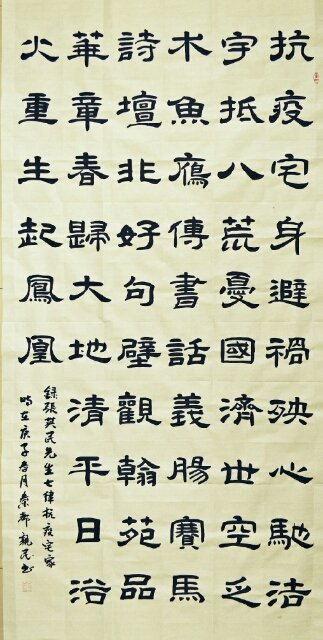 抗疫宅身避禍殃心馳浩
宇抵八荒憂國濟世空乏
木魚鴈傳書話義腸賽馬
詩壇好句壁觀翰苑品
華章春歸大地清平日浴
火重生起鳳凰
錄張民先生七律抗疫宅家
時在庚子春月秦都親民書